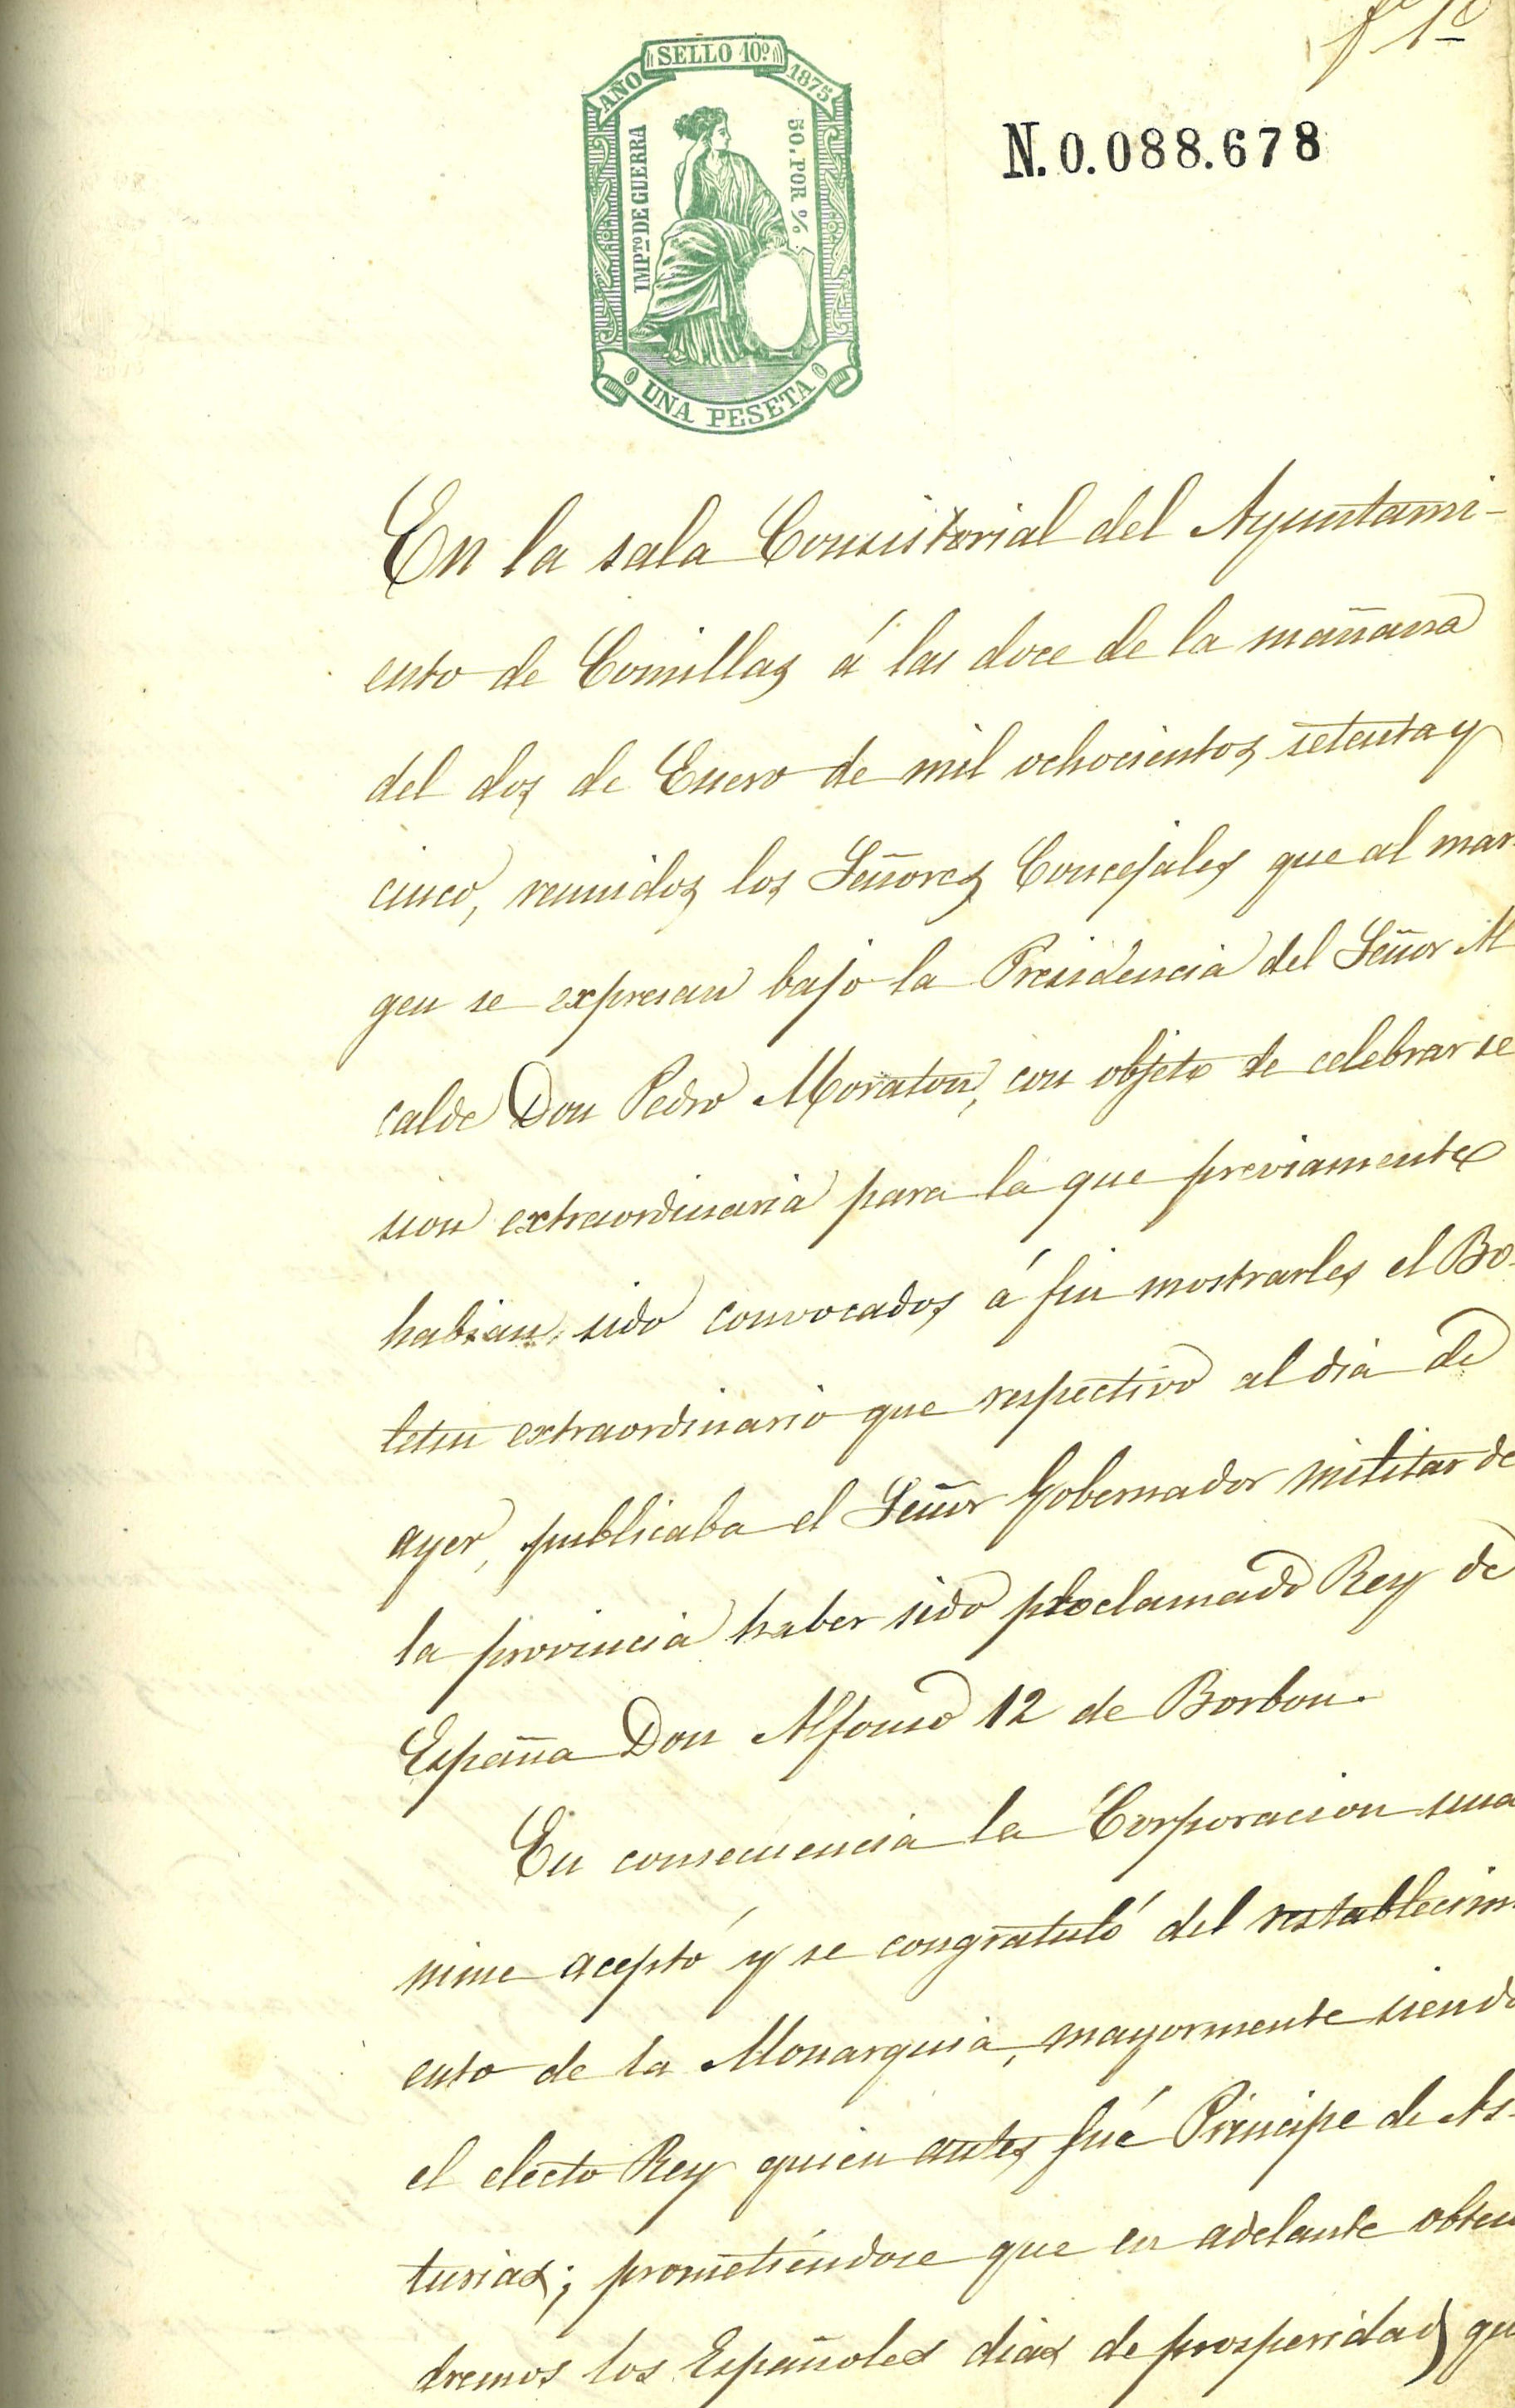 fº 1º
SELLO 10º
AÑO 1875
IMPTO DE GUERRA
50. POR %
UNA PESETA
N.0.088.678
En la sala Consistorial del Ayuntami-
ento de Comillas á las doce de la mañana
del dos de Enero de mil ochocientos setenta y
cinco, reunidos los Señores Concejales que al mar-
gen se expresan bajo la Presidencia del Señor Al
calde Don Pedro Moraton, con objeto de celebrar se
sion extraordinaria para la que previamente
habian sido convocados á fin mostrarles el Bo-
letin extraordinario que respectivo al dia de
ayer, publicaba el Señor Gobernador militar de
la provincia haber sido proclamado Rey de
España Don Alfonso 12 de Borbon.
En consecuencia la Corporacion una
nime aceptó y se congratuló del restablecimi
ento de la Monarquia, mayormente siendo
el electo Rey quien antes fué Principe de As-
turias; prometiéndose que en adelante obten
dremos los Españoles dias de prosperidad que